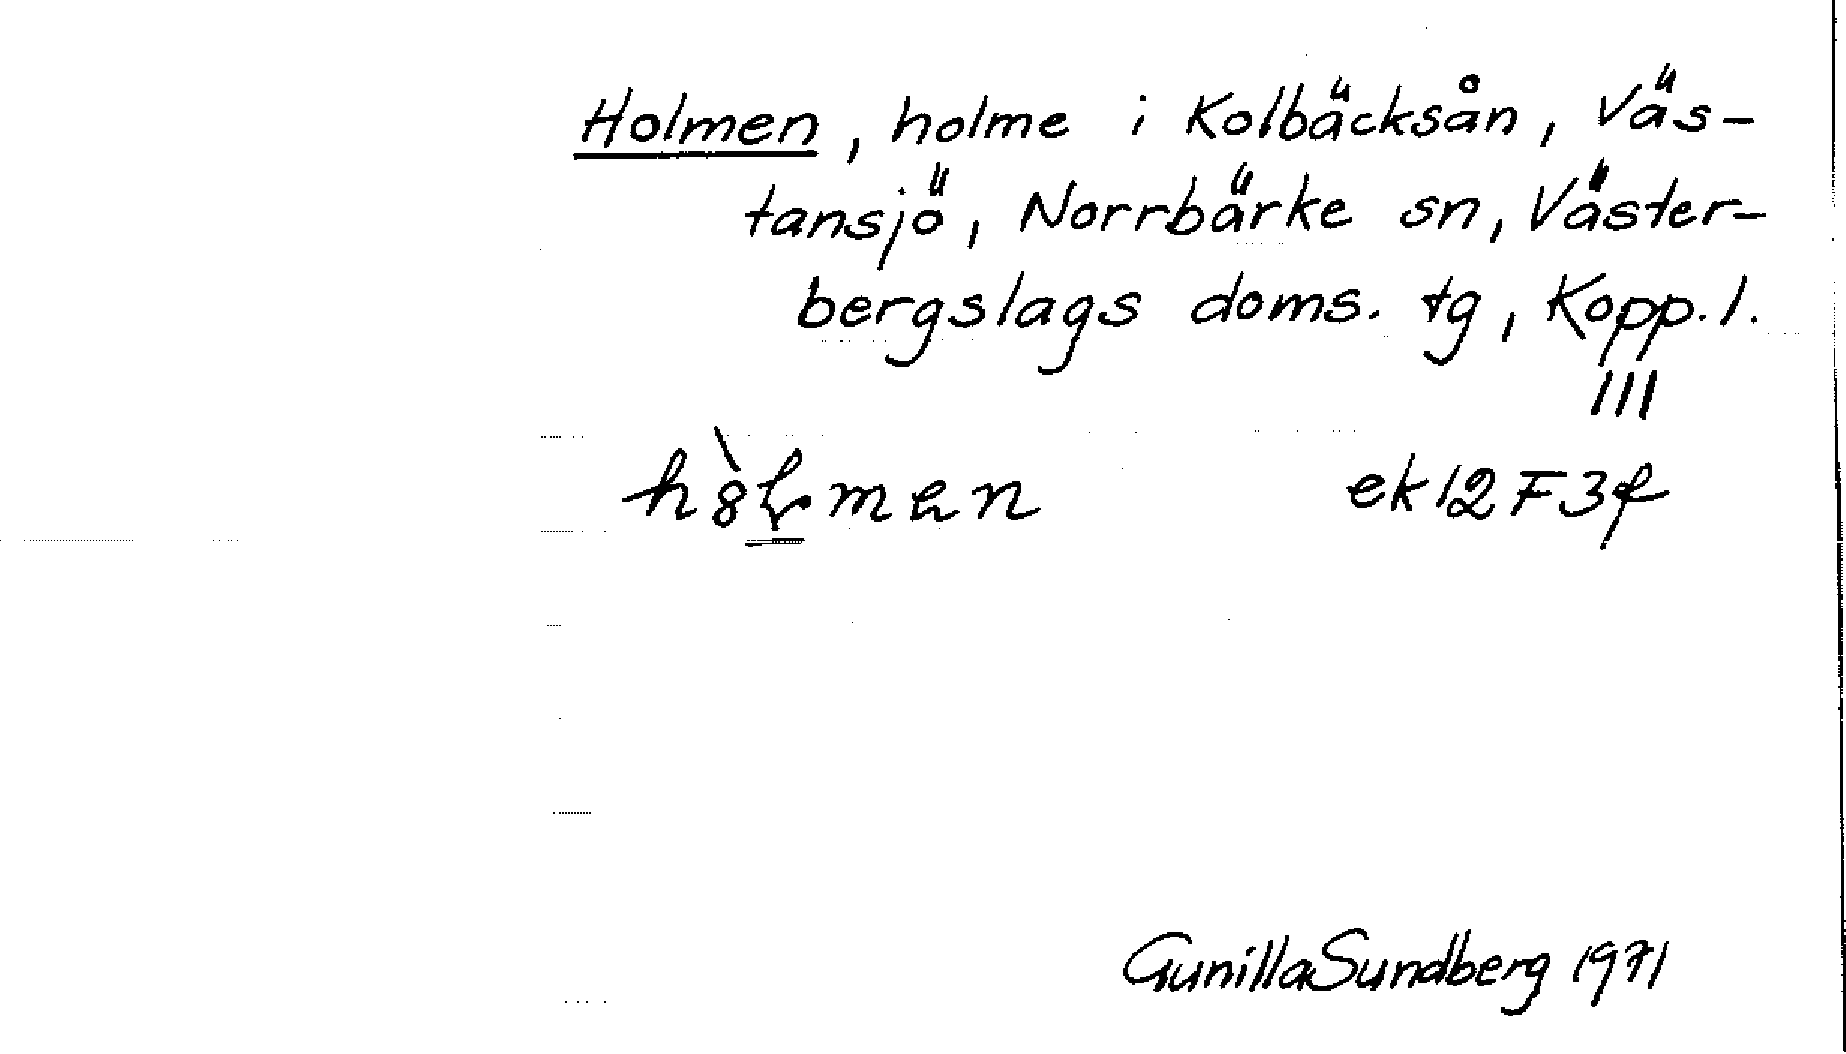 Holmen, holme i Kolbäcksån, Väs-
tansjö, Norrbärke sn, Väster-
bergslags doms. tg, Kopp. l.
III
ek 12 F 3f
Gunilla Sundberg 1971